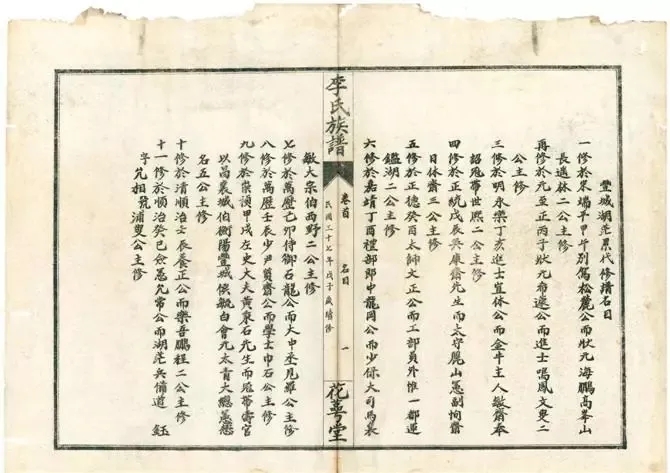 豐城湖茫累代修譜名目
一修於宋端平甲午別駕松麓公而狀元海鵬高峯山
長遜林二公主修
再修於元至正丙子狀元希遠公而進士鳴鳳文叟二
公主修
三修於明永樂丁亥進士宜休公而金牛主人斂齋奉
詔冠帶世熙二公主修
四修於正統戊辰吳康齋先生而太守麗山憲副恂齋
日休齋三公主修
五修於正德癸酉太師文正公而工部員外惟一都運
鑑湖二公主修
六修於嘉靖丁酉禮部郎中龍岡公而少保大司馬襄
李氏族譜
卷首 名目 一
民國三十七年戊子歲續修
花萼堂
敏大宗伯西野二公主修
七修於萬歷乙卯侍御石龍公而大中丞見羅公主修
八修於萬歷壬辰少尹質齋公而學士巾石公主修
九修於崇禎甲戌左史大夫黃東石先生而冠帶壽官
以昌襄城伯衡陽豐城侯毓白會元太青大總憲懋
名五公主修
十修於清順治壬辰養正公而樂吾鵬程二公主修
十一修於順治癸巳儉愚允常公而湖茫兵備道 鈺
字允相號浦叟公主修